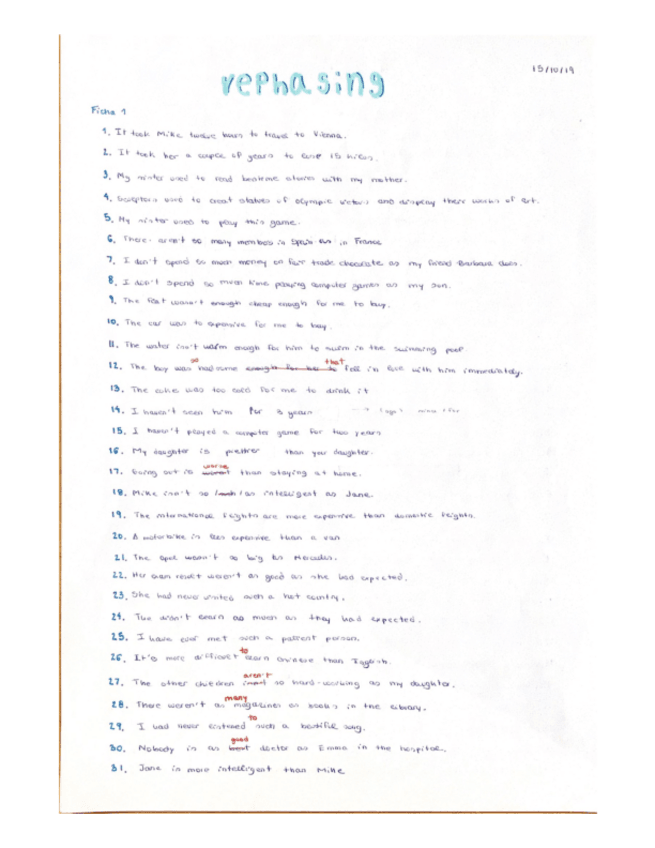 rephasing
15/10/19
Ficha 1
1. It took Mike twelve hours to travel to Vienna.
2. It took her a couple of years to 15 kilos.
3. My sister used to read bedtime stories with my mother.
4. Sculptors used to creat statues of olympic victors and display there works of art.
5. My sister used to play this game.
6. There aren't so many members in Spain as in France
7. I don't spend so much money on fair trade chocolate as my friend Barbara does.
8. I don't spend so much time playing computer games as my son.
9. The flat wasn't enough cheap enough for me to buy.
10. The car was to expensive for me to buy.
11. The water isn't warm enough for him to swim in the swimming pool.
12. The boy was so handsome that fell in love with him immediately.
13. The coke was too cold for me to drink it
14. I haven't seen him for 3 years
15. I haven't played a computer game for two years
16. My daughter is prettier than your daughter.
17. Going out is worse than staying at home.
18. Mike isn't so as intelligent as Jane.
19. The international flights are more expensive than domestic flights.
20. A motorbike is less expensive than a van
21. The Opel wasn't so big as Mercedes.
22. Her exam result weren't as good as she had expected.
23. She had never visited such a hot country.
24. The didn't earn as much as they had expected.
25. I have ever met such a patient person.
26. It's more difficult to learn chinese than English.
27. The other children aren't so hard-working as my daughter.
28. There weren't as many magazines as books in the library.
29. I had never listened to such a beatiful song.
30. Nobody is as good doctor as Emma in the hospital.
31. Jane is more intelligent than Mike